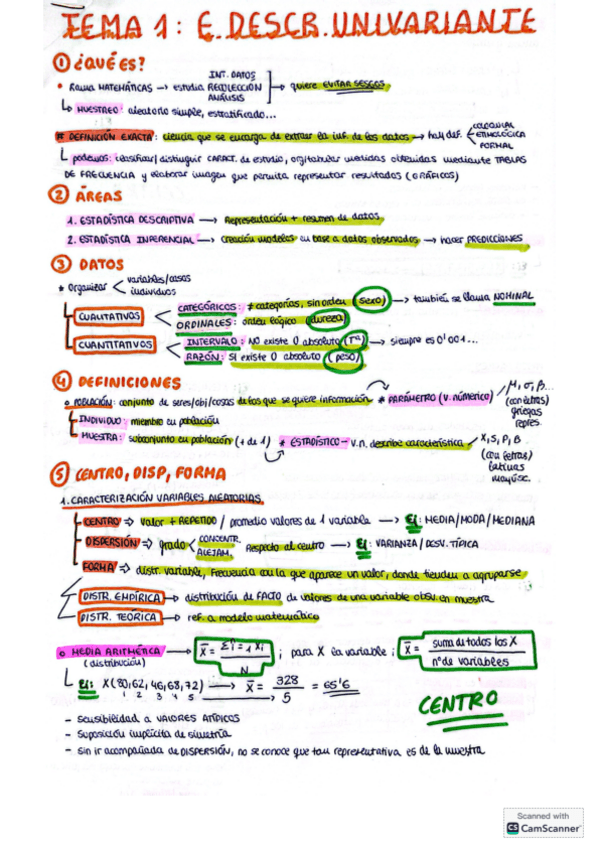 TEMA 1: E. DESCR. UNIVARIANTE
① ¿QUÉ ES?
• Rama MATEMÁTICAS → estudia INT. DATOS RECOLECCIÓN ANÁLISIS → quiere EVITAR SESGOS
↳ MUESTREO: aleatorio simple, estratificado...
# DEFINICIÓN EXACTA: ciencia que se encarga de extraer la inf. de los datos → hay def. COLOQUIAL ETIMOLÓGICA FORMAL
↳ podemos: clasificar/distinguir CARACT. de estudio, org/tabular medidas obtenidas mediante TABLAS
DE FRECUENCIA y elaborar imagen que permita representar resultados (GRÁFICOS)
② ÁREAS
1. ESTADÍSTICA DESCRIPTIVA → Representación + resumen de datos
2. ESTADÍSTICA INFERENCIAL → creación modelos en base a datos observados → hacer PREDICCIONES
③ DATOS
* Organizar < variables/casas individuos
CUALITATIVOS < CATEGÓRICOS: ≠ categorías, sin orden (sexo) → también se llama NOMINAL
ORDINALES: orden lógico (dureza)
CUANTITATIVOS < INTERVALO: NO existe 0 absoluto (Tª) → siempre es 0'001...
RAZÓN: SI existe 0 absoluto (peso)
④ DEFINICIONES
o POBLACIÓN: conjunto de seres/obj/cosas de los que se quiere información * PARÁMETRO (v. númerico) / μ, σ, β... (con letras) griegas repres.
INDIVIDUO: miembro en población
MUESTRA: subconjunto en población (+ de 1) * ESTADÍSTICO - v.n. describe característica / X, S, P, B (con letras) latinas mayúsc.
⑤ CENTRO, DISP, FORMA
1. CARACTERIZACIÓN VARIABLES ALEATORIAS
CENTRO ⇒ valor + REPETIDO / promedio valores de 1 variable → Ej: MEDIA/MODA/MEDIANA
DISPERSIÓN ⇒ grado < CONCENTR. ALEJAM. Respecto al centro → Ej: VARIANZA/DESV. TÍPICA
FORMA ⇒ distr. variable, Frecuencia con la que aparece un valor, donde tienden a agruparse
DISTR. EMPÍRICA → distribución de FACTO de valores de una variable obsv. en muestra
DISTR. TEÓRICA → ref. a modelo matemático
o MEDIA ARITMÉTICA (distribución) → x̄ = Σi=1 xi / N ; para X la variable i x̄ = suma d todos los X / nº de variables
↳ Ej: X (80, 62, 46, 68, 72) → x̄ = 328 / 5 = 65'6
1 2 3 4 5
CENTRO
- Sensibilidad a VALORES ATÍPICOS
- Suposición implícita de simetría
- Sin ir acompañada de DISPERSIÓN, no se conoce que tan representativa es de la muestra
Scanned with
CS CamScanner